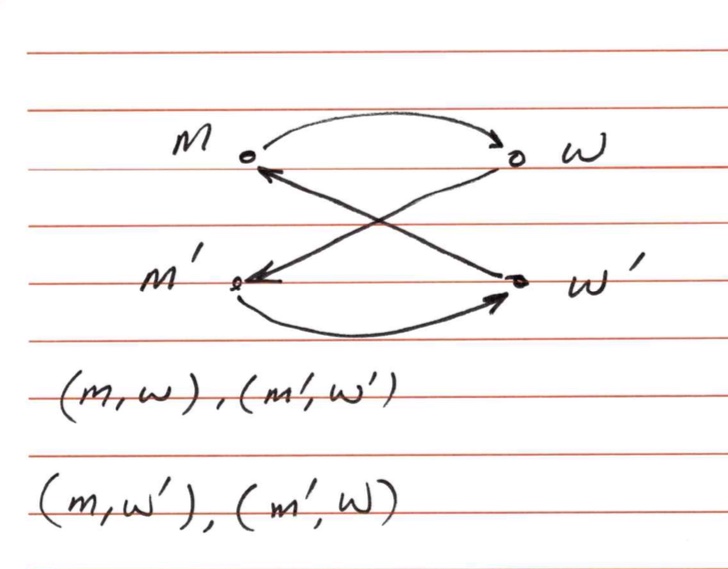 m w
m′ w′
(m, w), (m′, w′)
(m, w′), (m′, w)